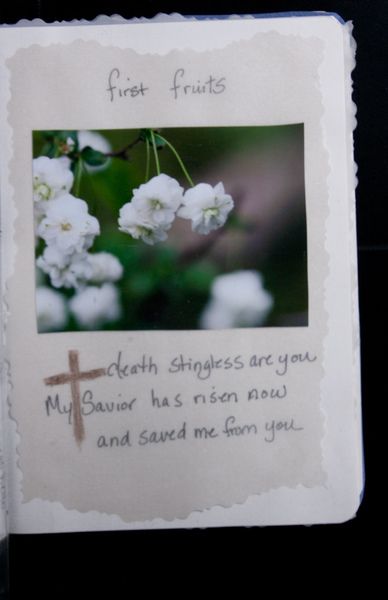 first fruits
death stingless are you
My Savior has risen now
and saved me from you